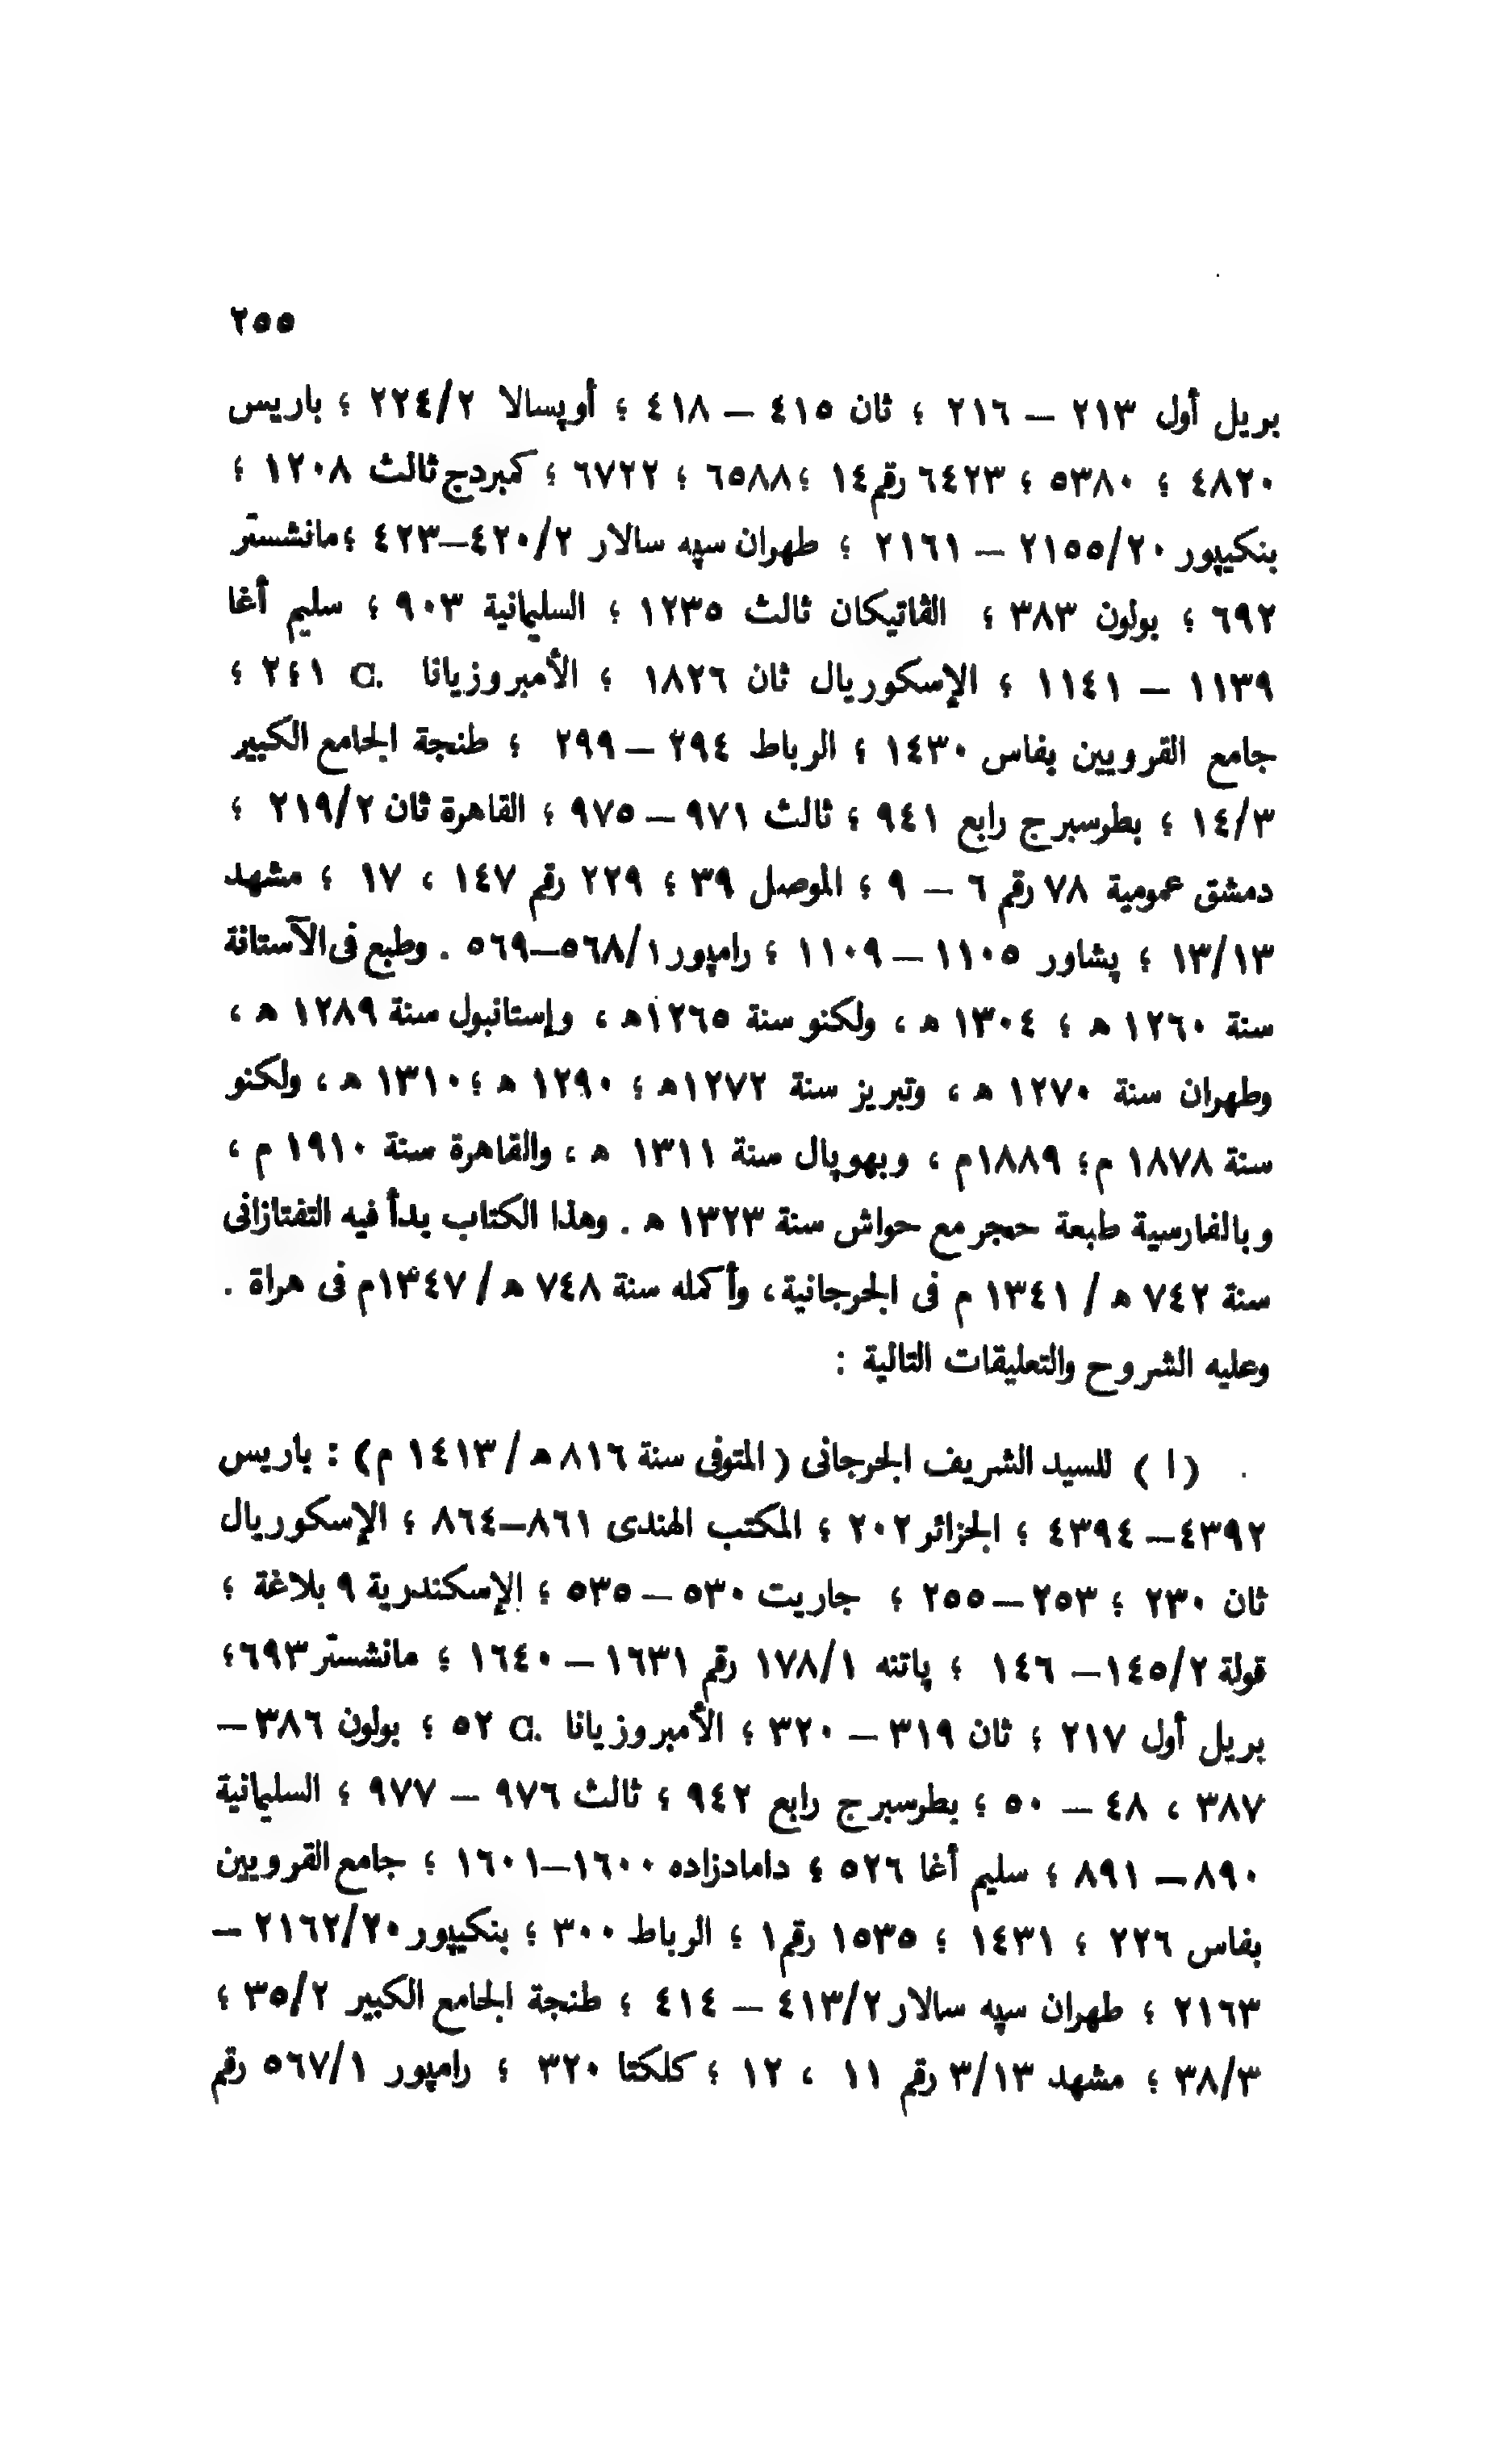 ٢٥٥
بريل أول ٢١٣ – ٢١٦ ؛ ثان ٤١٥ – ٤١٨ ؛ أوپسالا ٢٢٤/٢ ؛ باريس
٤٨٢٠ ؛ ٥٣٨٠ ؛ ٦٤٢٣ رقم ١٤ ؛ ٦٥٨٨ ؛ ٦٧٢٢ ؛ كمبردج ثالث ١٢٠٨ ؛
بنكيپور ٢١٥٥/٢٠ – ٢١٦١ ؛ طهران سپه سالار ٤٢٠/٢–٤٢٣ ؛ مانشستر
٦٩٢ ؛ بولون ٣٨٣ ؛ الڤاتيكان ثالث ١٢٣٥ ؛ السليمانية ٩٠٣ ؛ سليم أغا
١١٣٩ – ١١٤١ ؛ الإسكوريال ثان ١٨٢٦ ؛ الأمبروزيانا a. ٢٤١ ؛
جامع القرويين بفاس ١٤٣٠ ؛ الرباط ٢٩٤ – ٢٩٩ ؛ طنجة الجامع الكبير
١٤/٣ ؛ بطرسبرج رابع ٩٤١ ؛ ثالث ٩٧١ – ٩٧٥ ؛ القاهرة ثان ٢١٩/٢ ؛
دمشق عمومية ٧٨ رقم ٦ – ٩ ؛ الموصل ٣٩ ؛ ٢٢٩ رقم ١٤٧ ، ١٧ ؛ مشهد
١٣/١٣ ؛ پشاور ١١٠٥ – ١١٠٩ ؛ رامپور ٥٦٨/١–٥٦٩ . وطبع فى الآستانة
سنة ١٢٦٠ ه ؛ ١٣٠٤ ه ، ولكنو سنة ١٢٦٥ه ، وإستانبول سنة ١٢٨٩ ه ،
وطهران سنة ١٢٧٠ ه ، وتبريز سنة ١٢٧٢ه ؛ ١٢٩٠ ه ؛ ١٣١٠ ه ، ولكنو
سنة ١٨٧٨ م ؛ ١٨٨٩م ، وبهوپال سنة ١٣١١ ه ، والقاهرة سنة ١٩١٠ م ،
وبالفارسية طبعة حجر مع حواش سنة ١٣٢٣ ه . وهذا الكتاب بدأ فيه التفتازانى
سنة ٧٤٢ ه / ١٣٤١ م فى الجرجانية ، وأكمله سنة ٧٤٨ ه / ١٣٤٧م فى هراة .
وعليه الشروح والتعليقات التالية :
( ا ) للسيد الشريف الجرجانى ( المتوفى سنة ٨١٦ ه / ١٤١٣ م ) : باريس
٤٣٩٢– ٤٣٩٤ ؛ الجزائر ٢٠٢ ؛ المكتب الهندى ٨٦١–٨٦٤ ؛ الإسكوريال
ثان ٢٣٠ ؛ ٢٥٣ – ٢٥٥ ؛ جاريت ٥٣٠ – ٥٣٥ ؛ الإسكندرية ٩ بلاغة ؛
قولة ١٤٥/٢– ١٤٦ ؛ پاتنه ١٧٨/١ رقم ١٦٣١ – ١٦٤٠ ؛ مانشستر ٦٩٣؛
بريل أول ٢١٧ ؛ ثان ٣١٩ – ٣٢٠ ؛ الأمبروزيانا a. ٥٢ ؛ بولون ٣٨٦ –
٣٨٧ ، ٤٨ – ٥٠ ؛ بطرسبرج رابع ٩٤٢ ؛ ثالث ٩٧٦ – ٩٧٧ ؛ السليمانية
٨٩٠– ٨٩١ ؛ سليم أغا ٥٢٦ ؛ دامادزاده ١٦٠٠–١٦٠١ ؛ جامع القرويين
بفاس ٢٢٦ ؛ ١٤٣١ ؛ ١٥٣٥ رقم ١ ؛ الرباط ٣٠٠ ؛ بنكيپور ٢١٦٢/٢٠ –
٢١٦٣ ؛ طهران سپه سالار ٤١٣/٢ – ٤١٤ ؛ طنجة الجامع الكبير ٣٥/٢ ؛
٣٨/٣ ؛ مشهد ٣/١٣ رقم ١١ ، ١٢ ؛ كلكتا ٣٢٠ ؛ رامپور ٥٦٧/١ رقم